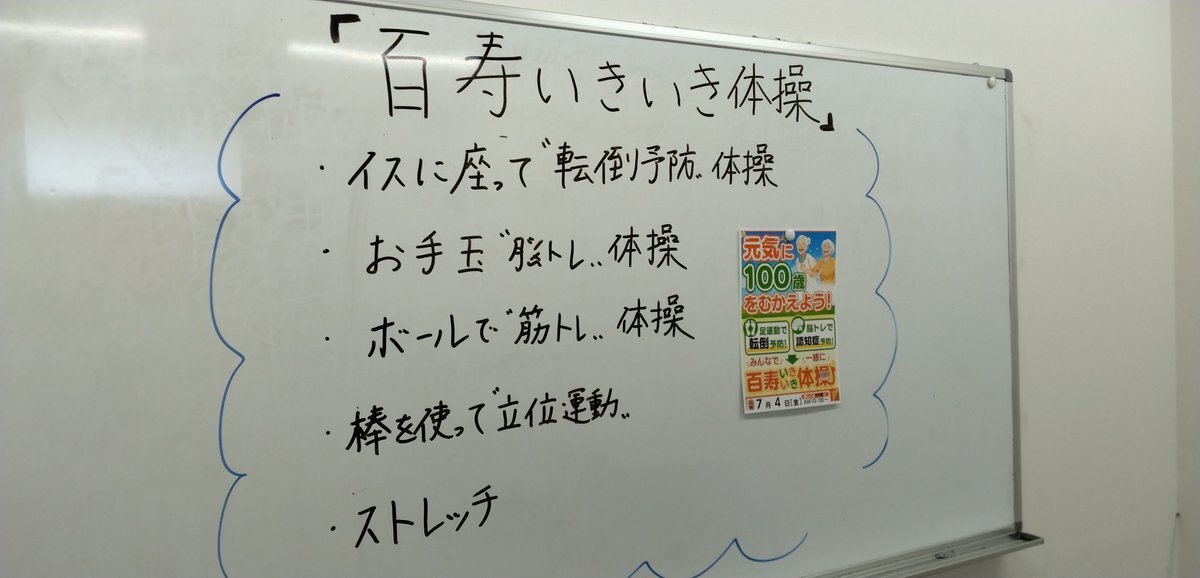 「百寿いきいき体操」
・イスに座って〝転倒予防〟体操
・お手玉〝脳トレ〟体操
・ボールで〝筋トレ〟体操
・棒を使って〝立位運動〟
・ストレッチ
元気に
100歳
をむかえよう!
足運動で
転倒予防!
脳トレで
認知症予防!
みんなで 一緒に
百寿いきいき体操
7月4日(金) AM10:00~